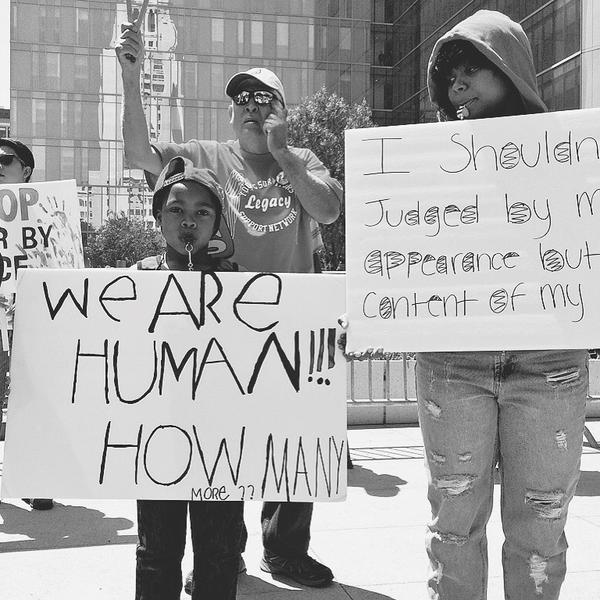 OP
R BY
CE
Legacy
SUPPORT NETWORK
WE ARE
HUMAN!!!
HOW MANY
MORE ??
I Shouldn
Judged by m
appearance but
content of my